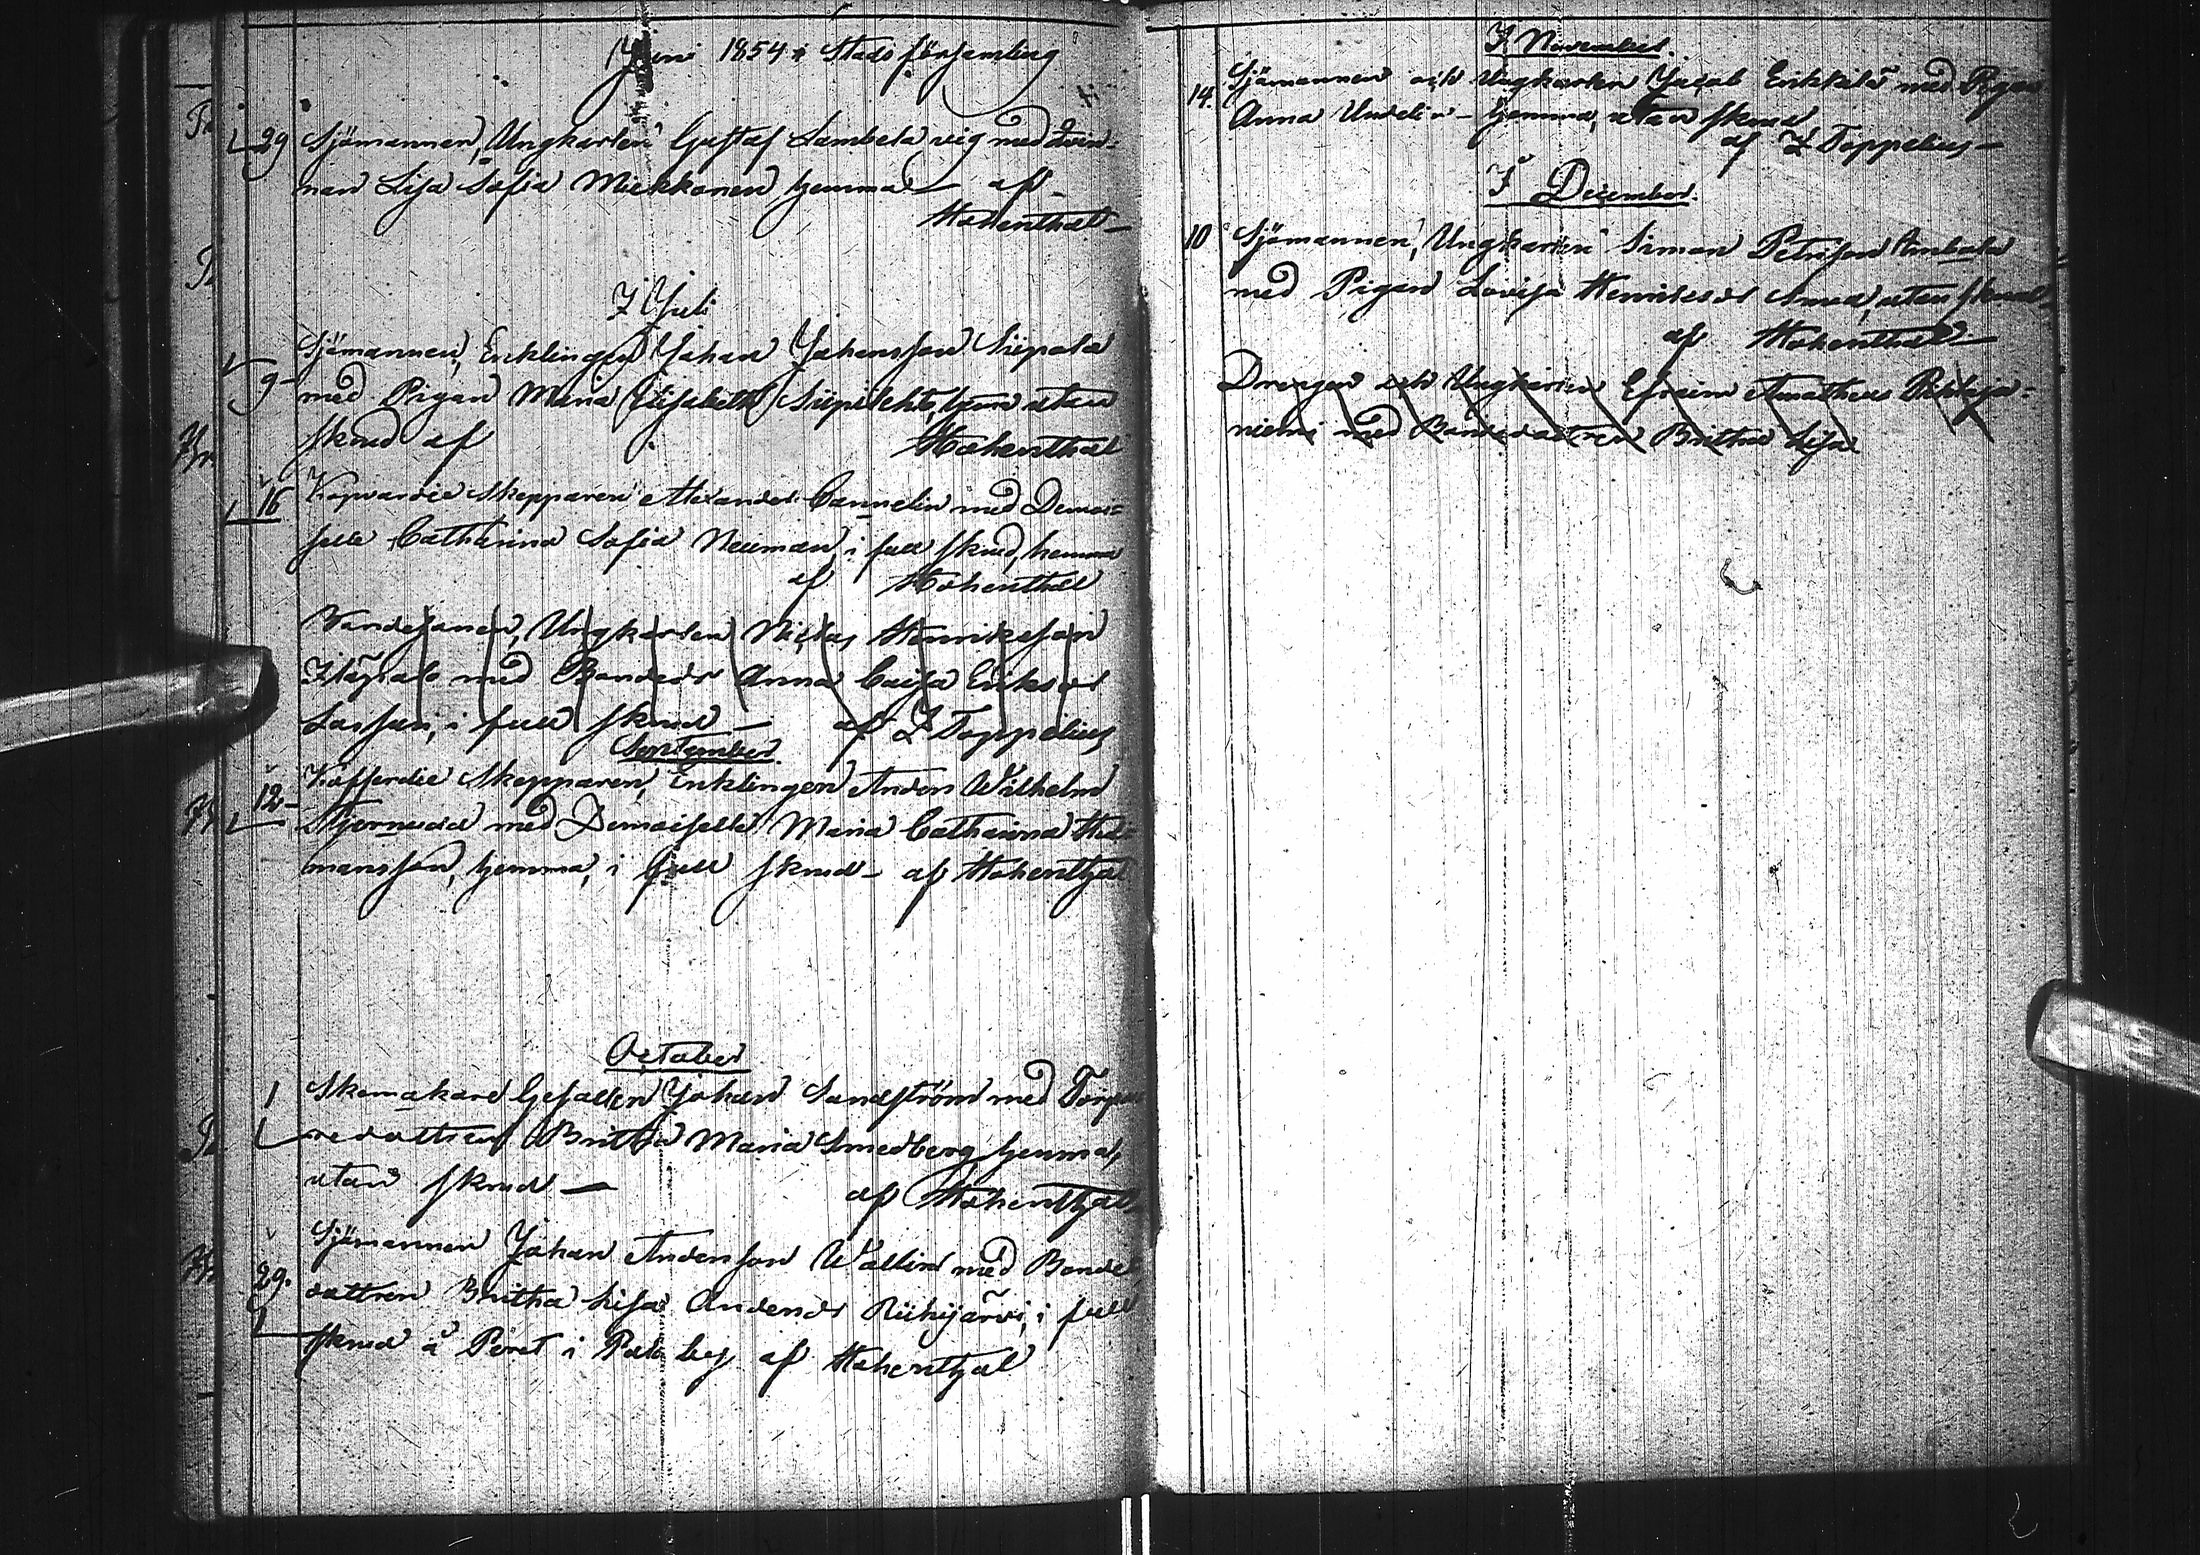 Juni 1854 i Stads församling
29 Sjömannen, Ungkarlen Gustaf Lambela vig med Qvin-
nan Lisa Sofia Miekkonen hemma af
Hohenthal
I Juli
Sjömannen, Enklingen Johan Johansson Siipola
9 med Pigan Maria Elisabeth Siipilehto, hem utan
skrud af Hohenthal
16 Kopvardie Skepparen Alexander Cannelin med Demoi-
selle Catharina Sofia Neiman, i full skrud, hemma
af Hohenthal
Bondesonen, Ungkarlen Niclas Henriksson
med Bondedr Anna Caisa Eriksdr
Lassari, i full skrud – af Z Toppelius
September
12 Kofferdie Skepparen, Enklingen Anders Wilhelm
Stjernvall med Demoiselle Maria Catharina Hed-
mansson, hemma, i full skrud – af Hohenthal
October
1 Skomakare Gesällen Johan Sandström med Torpa-
redottren Britha Maria Smedberg hemma,
utan skrud – af Hohenthal
Sjömannen Johan Andersson Wallin med Bonde
29. dottren Britha Lisa Andersdr Riihijärvi, i full
skrud å Pöret i Pato by af Hohenthal
I November.
14. Sjömannen och Ungkarlen Jacob Erikkilä med Pigan
Anna Undelin – hemma, utan skrud
af Z Toppelius –
I December.
10 Sjömannen, Ungkarlen Simon Petersson Ambela
med Pigan Lovisa Henriksdr Smed, utan skrud,
af Hohenthal –
Drengen och Ungkarlen Efraim Amatheus
niemi med Bondedottren Britha Lisa